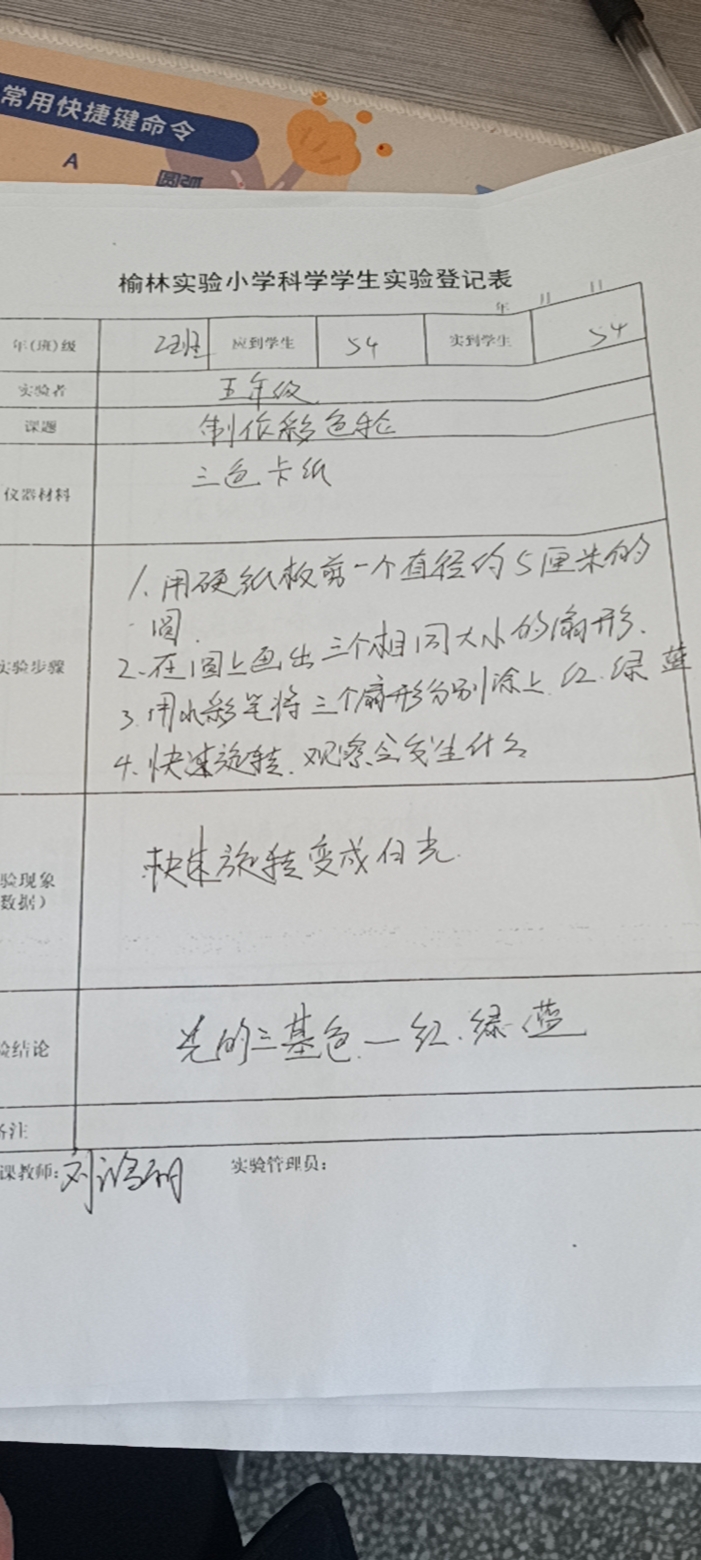 常用快捷键命令
A
圆弧
榆林实验小学科学学生实验登记表
年 月 日
年(班)级 2班 应到学生 54 实到学生 54
实验者 五年级
课题 制作彩色轮
仪器材料 三色卡纸
实验步骤 1.用硬纸板剪一个直径约5厘米的
圆.
2.在圆上画出三个相同大小的扇形.
3.用水彩笔将三个扇形分别涂上红.绿 蓝
4.快速旋转.观察会发生什么
验现象
数据) 快速旋转变成白光.
验结论 光的三基色—红.绿.蓝
备注
课教师:刘 实验管理员: